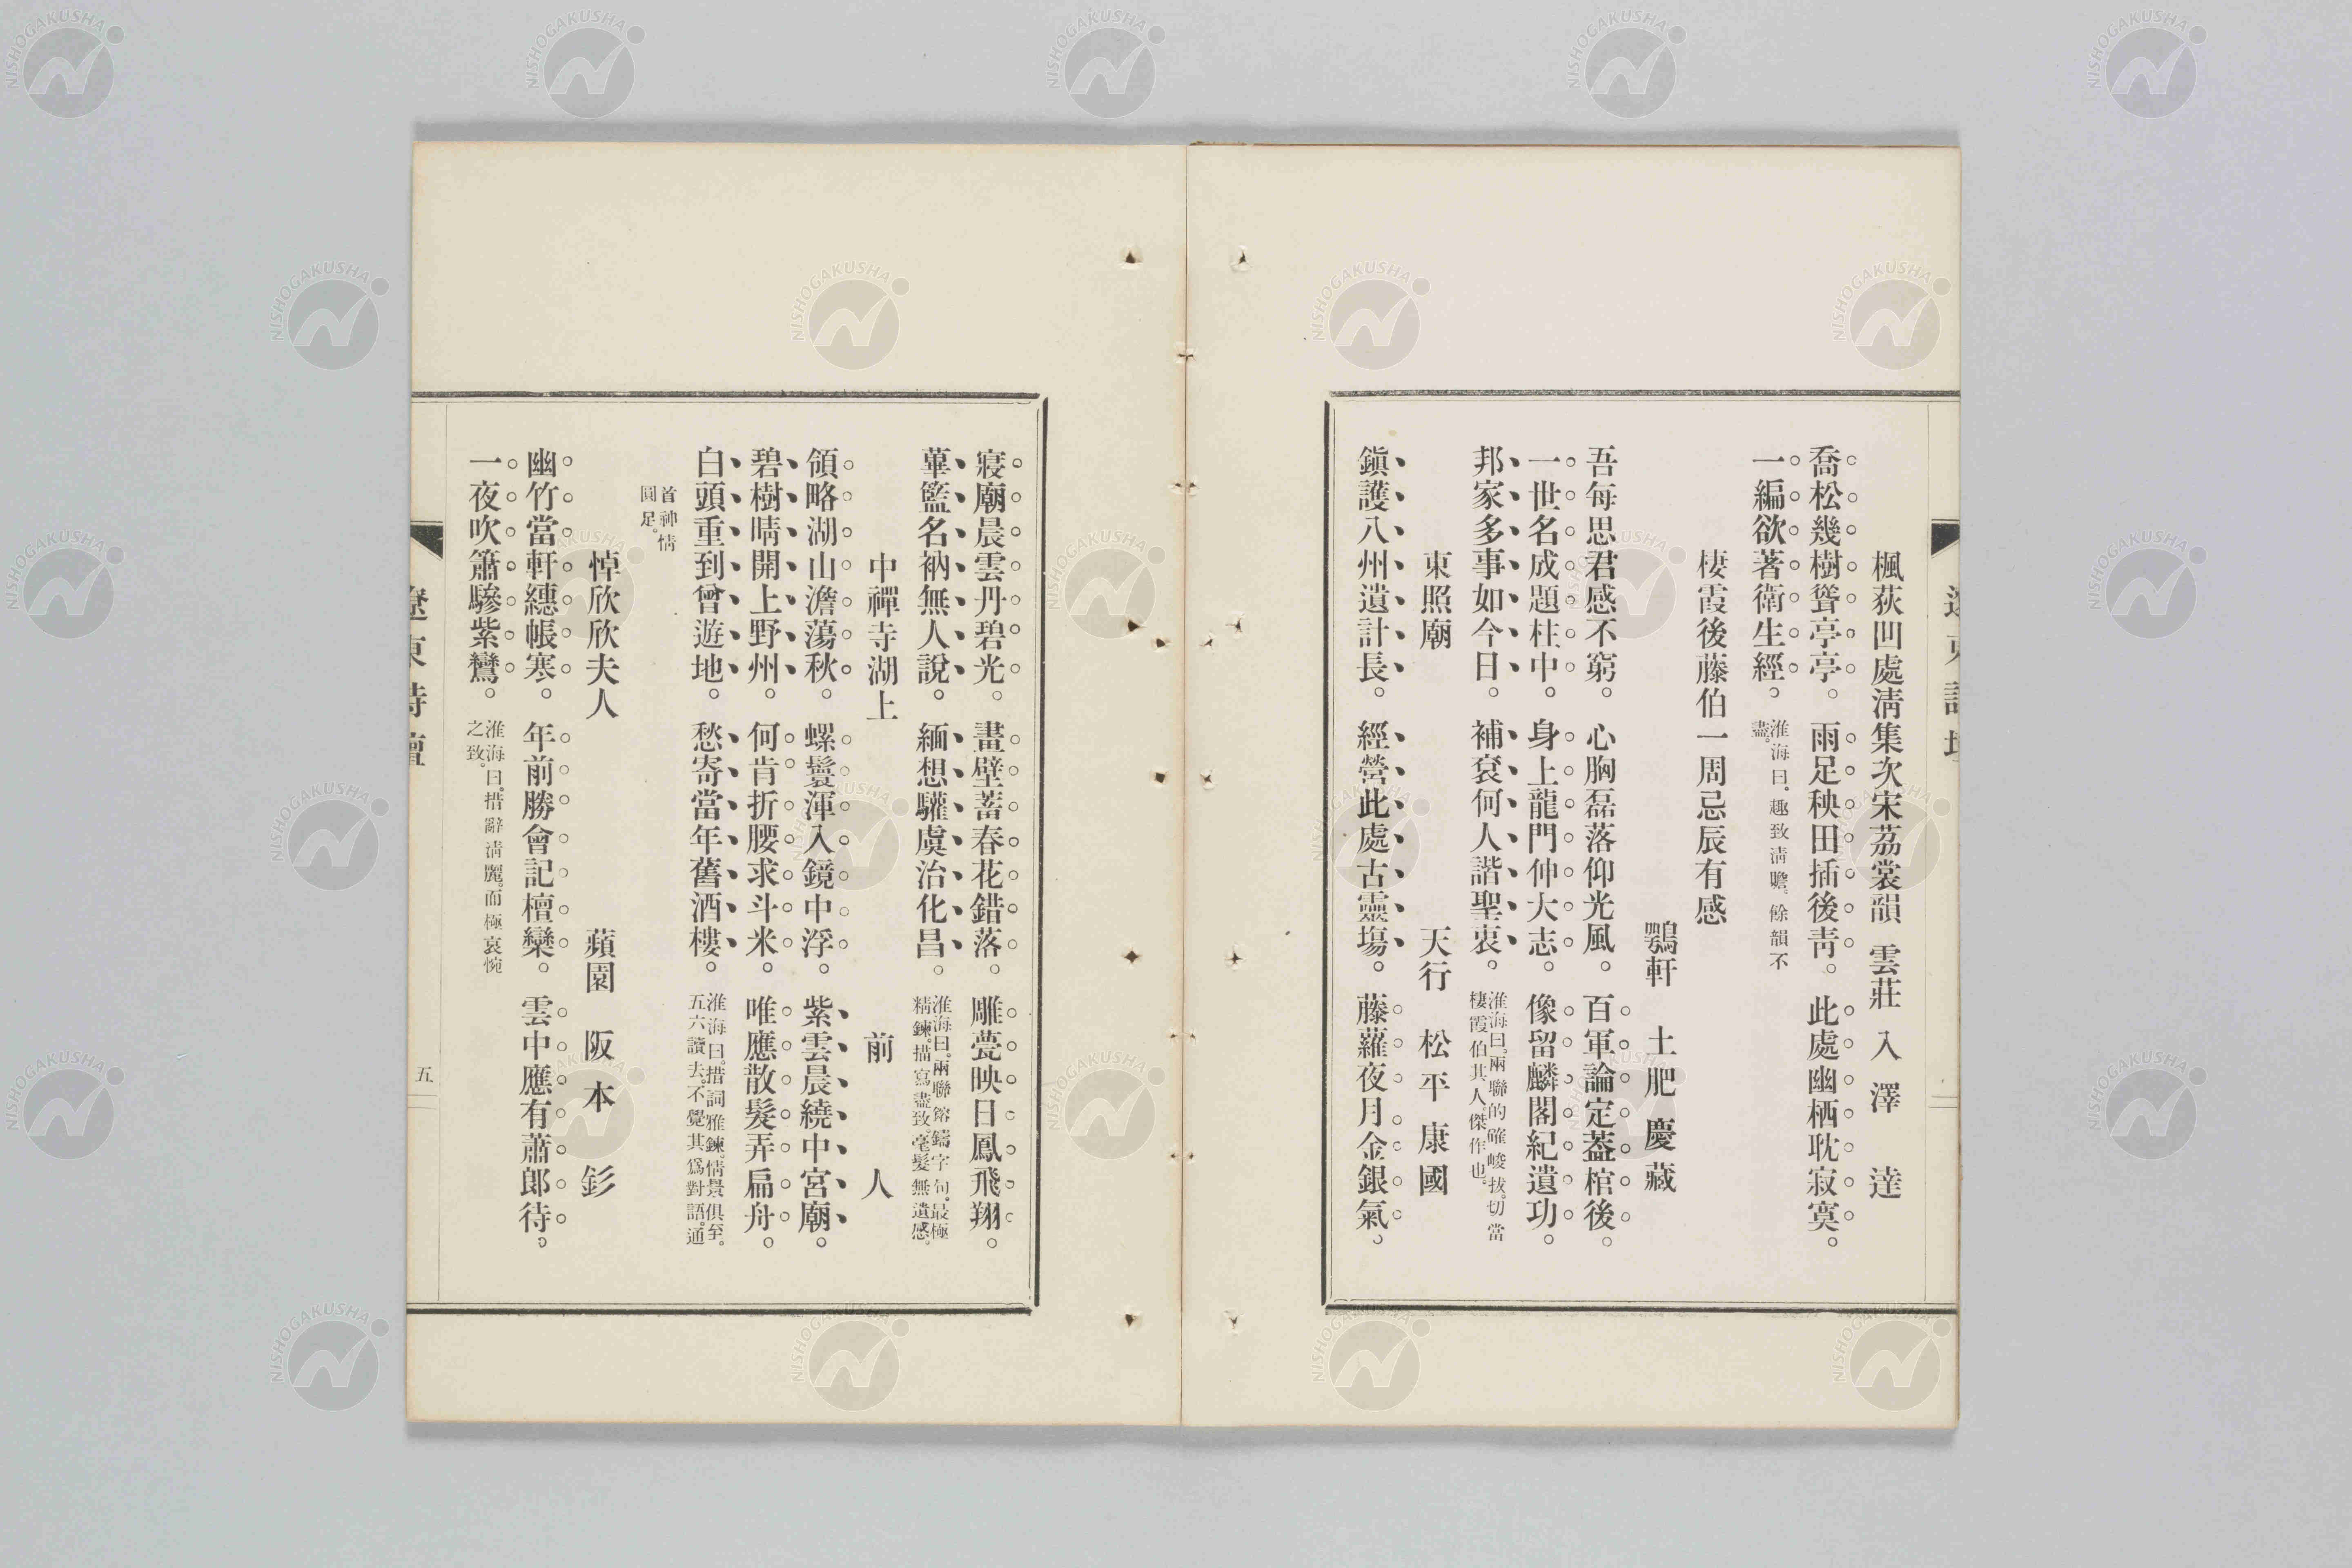 楓荻凹處淸集次宋荔裳韻 雲莊 入澤達
喬松幾樹聳亭亭。雨足秧田插後靑。此處幽栖耽寂寞。
一編欲著衛生經。淮海曰。趣致淸贍。餘韻不
盡。
棲霞後藤伯一周忌辰有感
鶚軒 土肥慶藏
吾每思君感不窮。心胸磊落仰光風。百軍論定蓋棺後。
一世名成題柱中。身上龍門仲大志。像留麟閣紀遺功。
邦家多事如今日。補袞何人諧聖衷。淮海曰。兩聯的確峻拔。切當
棲霞伯其人。傑作也。
東照廟 天行 松平康國
鎭護八州遺計長。經營此處古靈塲。藤蘿夜月金銀氣。
寢廟晨雲丹碧光。畫壁蓄春花錯落。雕甍映日鳳飛翔。
葷籃名衲無人說。緬想驩虞治化昌。淮海曰。兩聯鎔鑄字句。最極
精鍊。描寫盡致。毫髮無遺感。
中禪寺湖上 前人
領略湖山澹蕩秋。螺鬟渾入鏡中浮。紫雲晨繞中宮廟。
碧樹晴開上野州。何肯折腰求斗米。唯應散髮弄扁舟。
白頭重到曾遊地。愁寄當年舊酒樓。淮海曰。措詞雅鍊。情景俱至。
五六讀去。不覺其爲對語。通
首神情
圓足。
悼欣欣夫人 蘋園 阪本釤
幽竹當軒繐帳寒。年前勝會記檀欒。雲中應有蕭郎待。
一夜吹簫驂紫鸞。淮海曰。措辭淸麗。而極哀惋
之致。
遼東詩壇
五